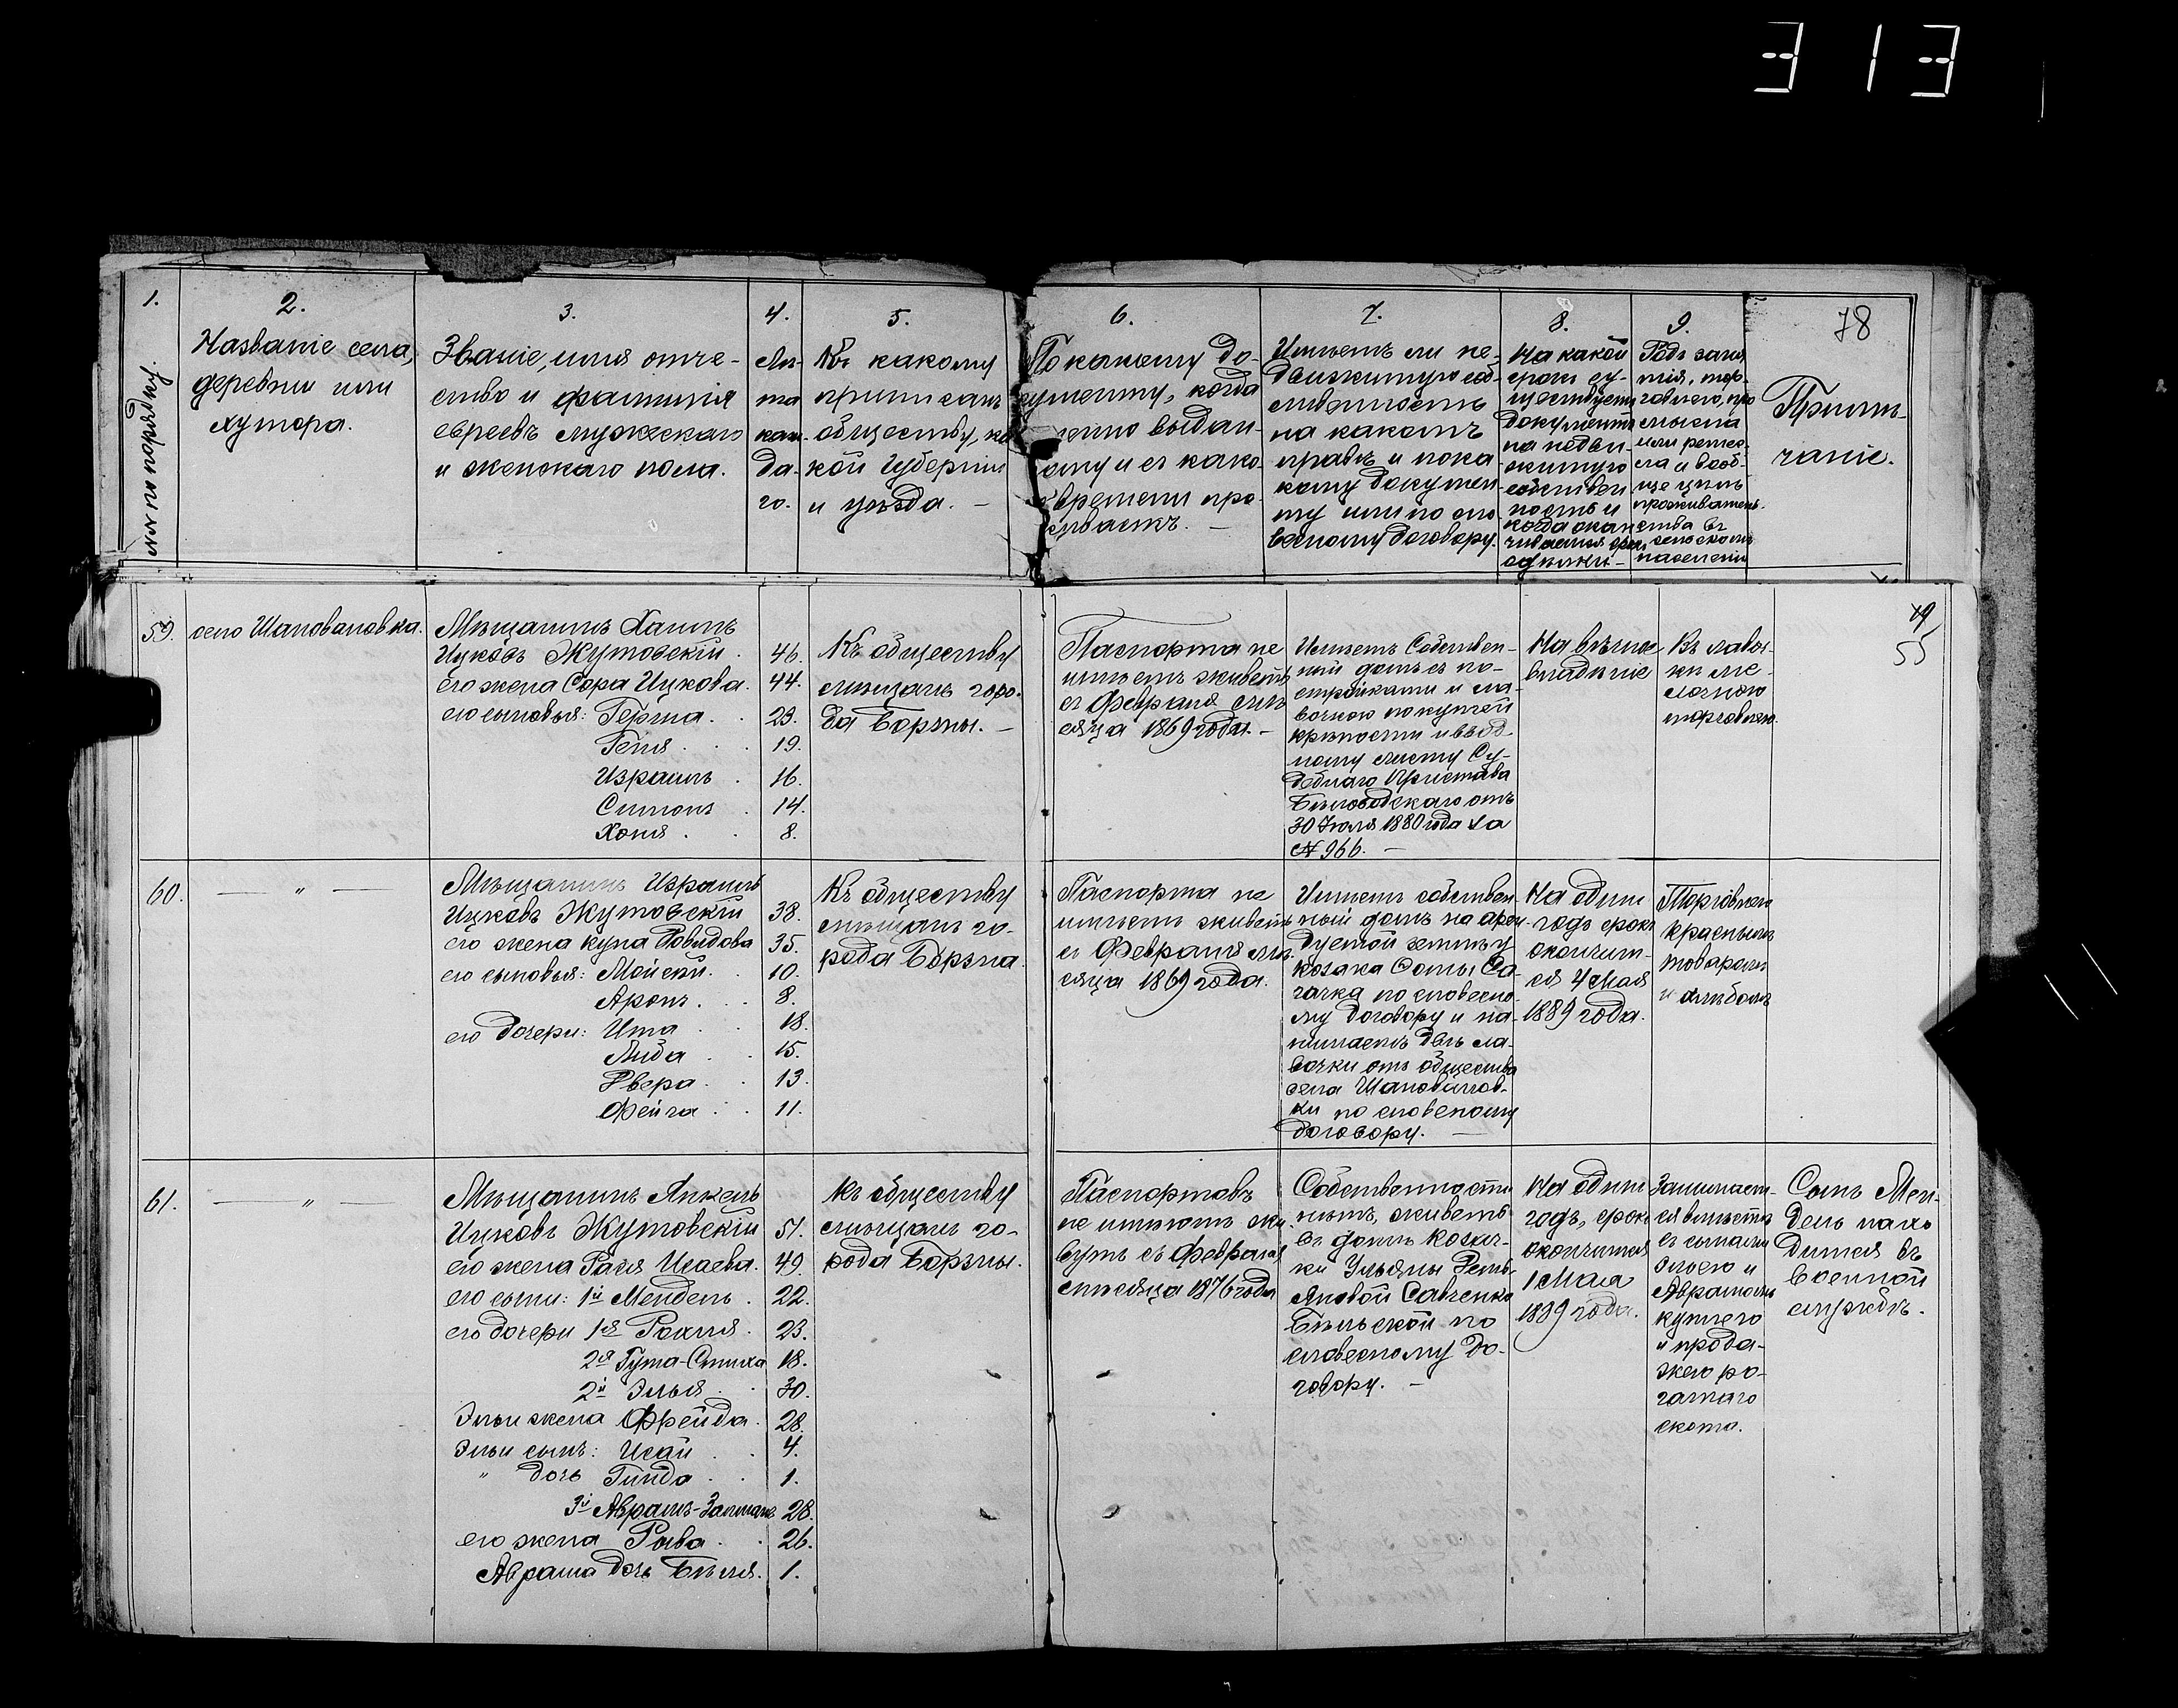 313
1.
№№ по порядку.
2.
Названіе села,
деревни или
хутора.
3.
Званіе, имя отче-
ство и фамилія
евреевъ мужескаго
и женскаго пола.
4.
Лѣ-
та
каж-
да-
го.
5.
Къ какому
приписанъ
обществу, ка
кой губерніи
и уѣзда. —
6.
По какому до-
кументу, когда
выдан-
ому и съ како-
времени про-
живаетъ. —
7.
Имѣетъ ли не-
движимую соб-
ственность
на какомъ
правѣ и по ка
кому докумен-
ту или по сло-
весному договору.
8.
На какой
срокъ су-
ществуетъ
документъ
на недви-
жимую
собствен
ность и
когда окан
чивается срокъ
сдѣлки —
9.
Родъ заня
тія, тор-
говлею, про
мысла
или ремес-
ла и вооб-
ще цѣль
прожIватель-
ства въ
сельскомъ
населеніи
78
Примѣ-
чаніе.
59.
село Шаповаловка.
Мѣщанинъ Хаимъ
Ицковъ Жутовскій. 46.
его жена Сора Ицкова. 44.
его сыновья: Герша. 23.
Геня. 19.
Израиль. 16.
Симонъ. 14.
Хоня. 8.
Къ обществу
мѣщанъ горо-
да Борзны. —
Паспорта не
имѣетъ живетъ
съ Февраля мѣ
сяца 1869 года. —
Имѣетъ Собствен-
ный домъ съ по-
стройками и ла-
вочкою по купчей
крѣпости и ввод-
ному листу Су-
дебнаго Пристава
Бѣловодскаго отъ
30 Іюля 1880 года за
№ 966. —
На вѣчное
владѣніе
Въ лавоч-
ки ме-
лочною
торговлею.
55
60.
— " —
Мѣщанинъ Израиль
Ицковъ Жутовскій 38.
его жена Куна Довидова 35.
его сыновья: Мойсей. 10.
Аронъ. 8.
его дочери: Ита 18.
Либа 15.
Двера. 13.
Фейга 11.
Къ обществу
мѣщанъ го-
рода Борзна.
Паспорта не
имѣетъ живетъ
съ Февраля мѣ-
сяца 1869 года.
Имѣетъ собствен
ный домъ на арен-
дуемой землѣ у
козака Сомы Са-
гачка по словесно-
му договору и на-
нимаетъ двѣ ла-
вочки отъ общества
села Шаповалов-
ки по словесному
договору. —
На одинъ
годъ срокъ
окончит-
ся 4 Мая
1889 года.
Торговлею
краснымъ
товаромъ
и хлѣбомъ
61.
— " —
Мѣщанинъ Янкель
Ицковъ Жутовскій 51.
его жена Рася Исаева. 49.
его сыни: 1й Мендель. 22.
его дочери 1я Рохля. 23.
2я Гута-Стиха 18.
2й Элья. 30.
Эльи жена Фрейда. 28.
Эльи сынъ: Исай 4.
" дочь Гинда 1.
3й Абрамъ-Залманъ 28.
его жена Рива. 26.
Абрама дочь Бейля. 1.
Къ обществу
мѣщанъ го-
рода Борзны.
Паспортовъ
не имѣютъ жи-
вутъ съ Февраля
мѣсяца 1876 года
Собственности
нѣтъ, живетъ
въ домѣ козач-
ки Ульяны Демь-
яновой Савченко
Бѣльской по
словесному до-
говору. —
На одинъ
годъ, срокъ
окончится
1 Мая
1889 года.
Занимает-
ся вмѣстѣ
съ сынами
Эльею и
Абрамомъ
куплею
и прода-
жею ро-
гатаго
скота.
Сынъ Мен-
дель нахо
дится въ
военной
службѣ.